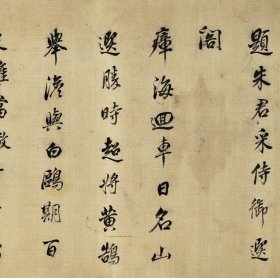 題朱君采侍御選
閣
瘴海迴車日名山
選勝時超將黃鵠
舉澹與白鷗期百